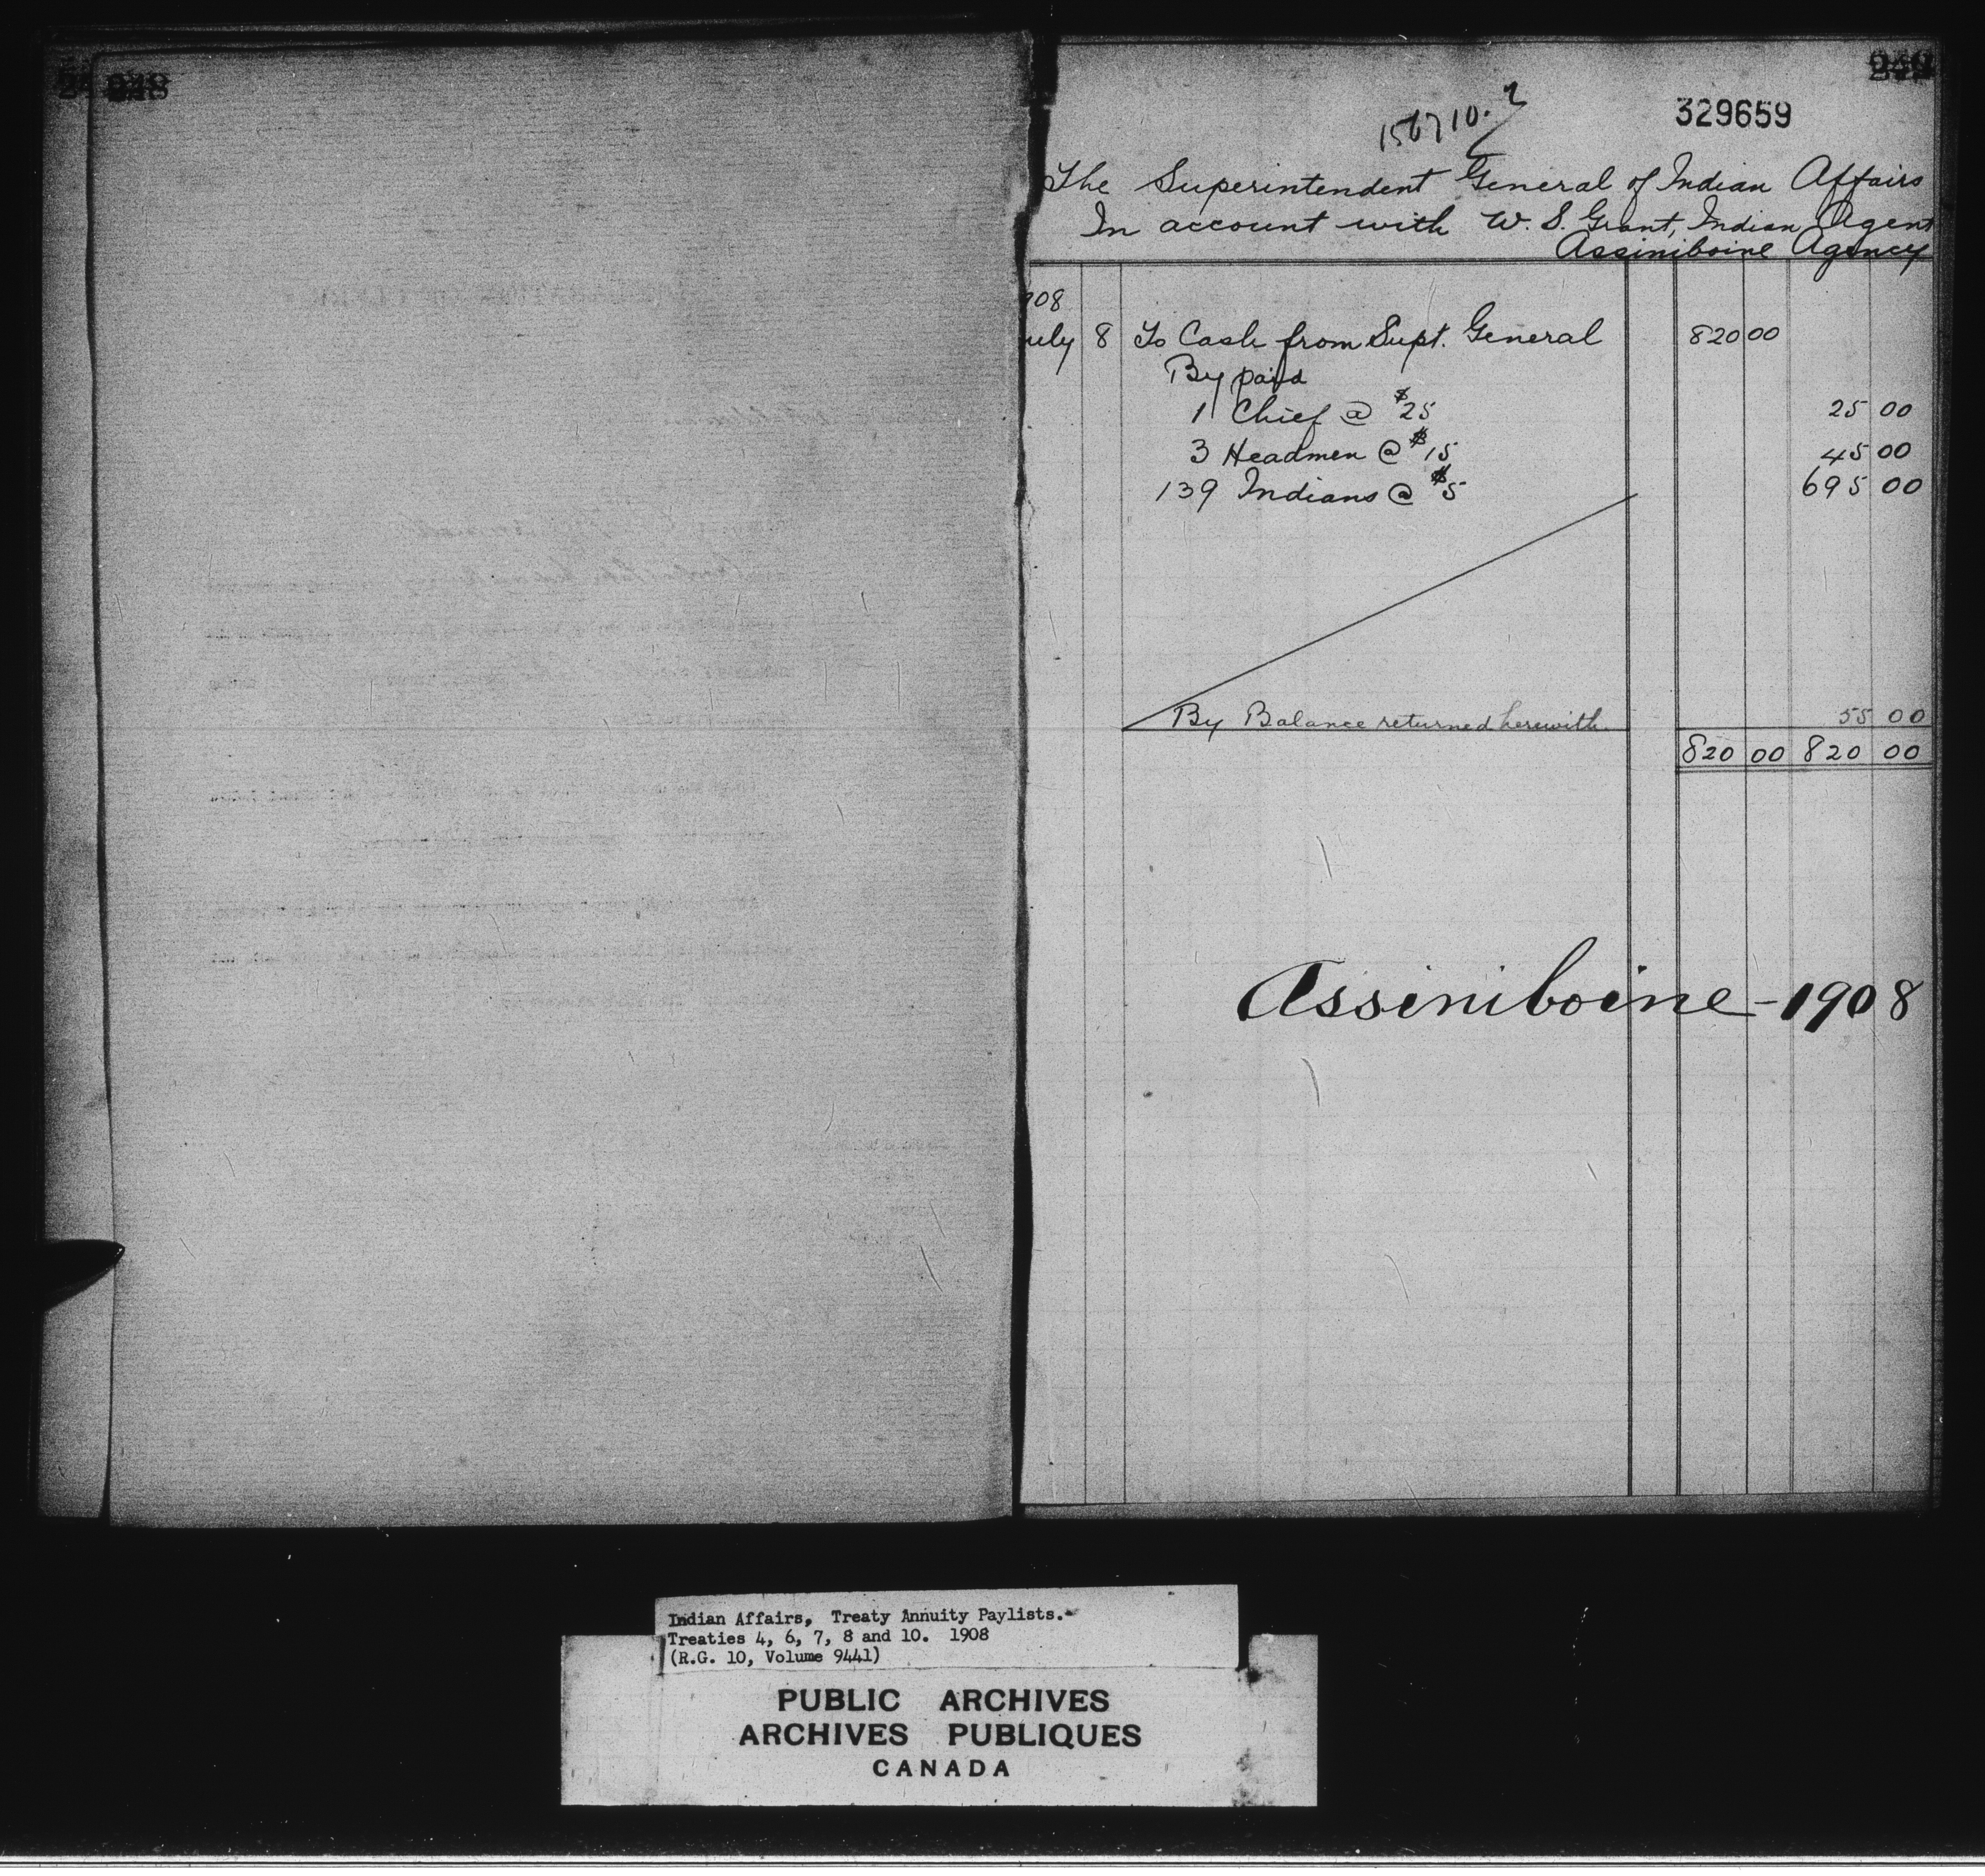 248
249
156710.2
329659
The Superintendent General of Indian Affairs
In account with W. S. Grant, Indian Agent
Assiniboine Agency
908
uly 8 To Cash from Supt. General 820 00
By paid
1 Chief @ $25 25 00
3 Headmen @ $15 45 00
139 Indians @ $5 695 00
By Balance returned herewith. 55 00
820 00 820 00
Assiniboine - 1908
Indian Affairs, Treaty Annuity Paylists.-
Treaties 4, 6, 7, 8 and 10. 1908
(R.G. 10, Volume 9441)
PUBLIC ARCHIVES
ARCHIVES PUBLIQUES
CANADA